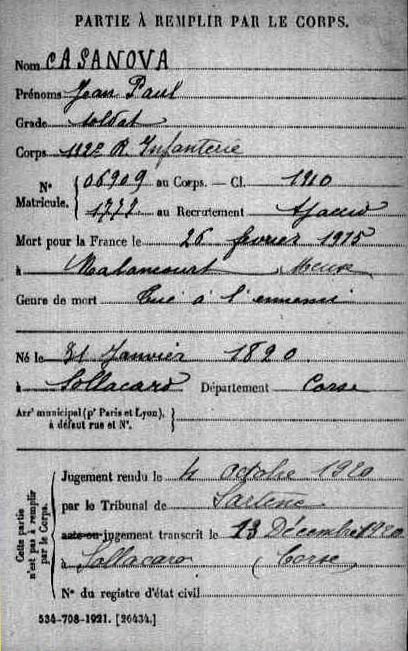 PARTIE À REMPLIR PAR LE CORPS.
Nom CASANOVA
Prénoms Jean Paul
Grade soldat
Corps 112e R. Infanterie
Nº Matricule. { 06909 au Corps. — Cl. 1910
1777 au Recrutement Ajaccio
Mort pour la France le 26 février 1915
à Malancourt Meuse
Genre de mort Tué à l'ennemi
Né le 31 Janvier 1890
à Sollacaro Département Corse
Arrt municipal (pr Paris et Lyon), }
à défaut rue et Nº.
Cette partie n'est pas à remplir par le Corps.
Jugement rendu le 4 Octobre 1920
par le Tribunal de Sartène
acte ou jugement transcrit le 13 Décembre 1920
à Sollacaro (Corse)
Nº du registre d'état civil
534-708-1921. [26434.]